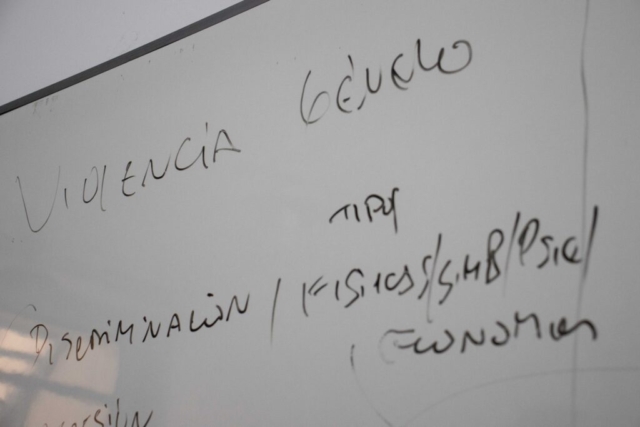 VIOLENCIA GÉNERO
TIPOS
DISCRIMINACIÓN / FISICAS/SIMB/PSIC/
ECONOMICA